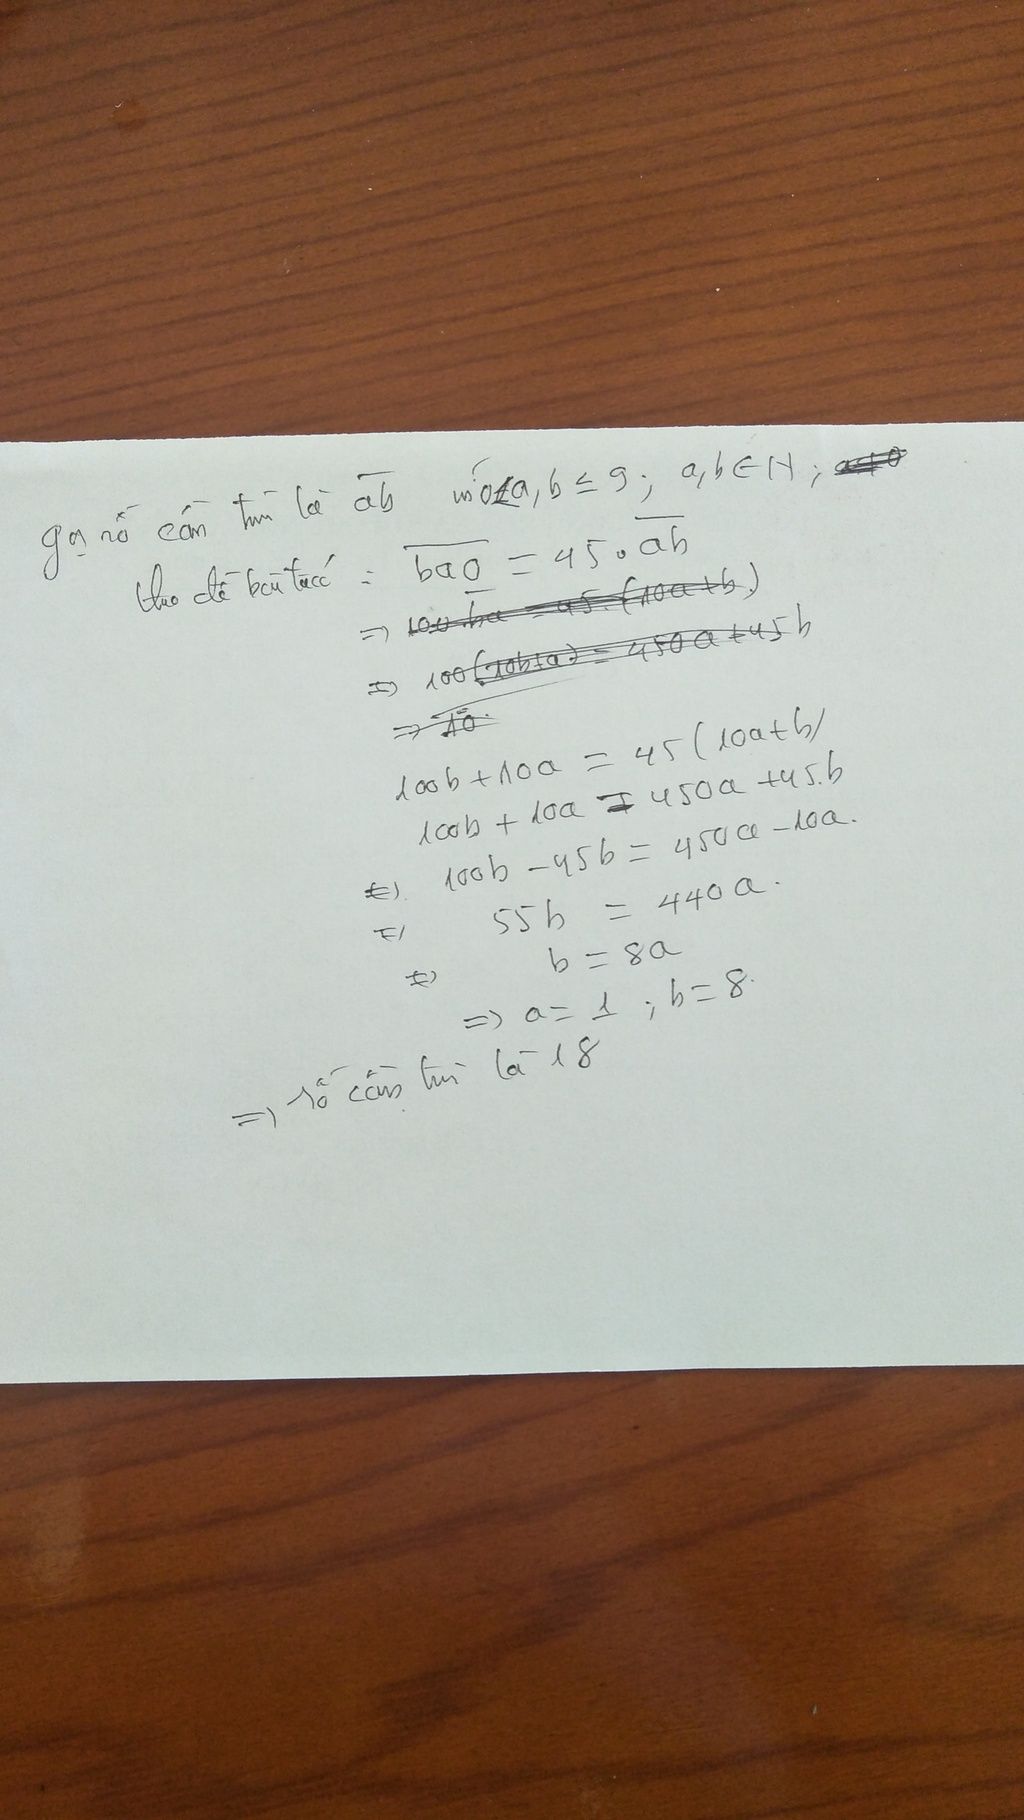 gọi số cần tìm là ab với 0<a,b ≤ 9; a,b ∈ N;
theo đề bài ta có: ba0 = 45.ab
=> 100.ba = 45.(10a+b.)
=> 100(10b+a) = 450a+45b
=> 10
100b+10a = 45(10a+b)
100b + 10a = 450a +45.b
<=> 100b -45b = 450a -10a.
<=> 55b = 440a.
<=> b = 8a
=> a= 1 ; b= 8.
=> số cần tìm là 18